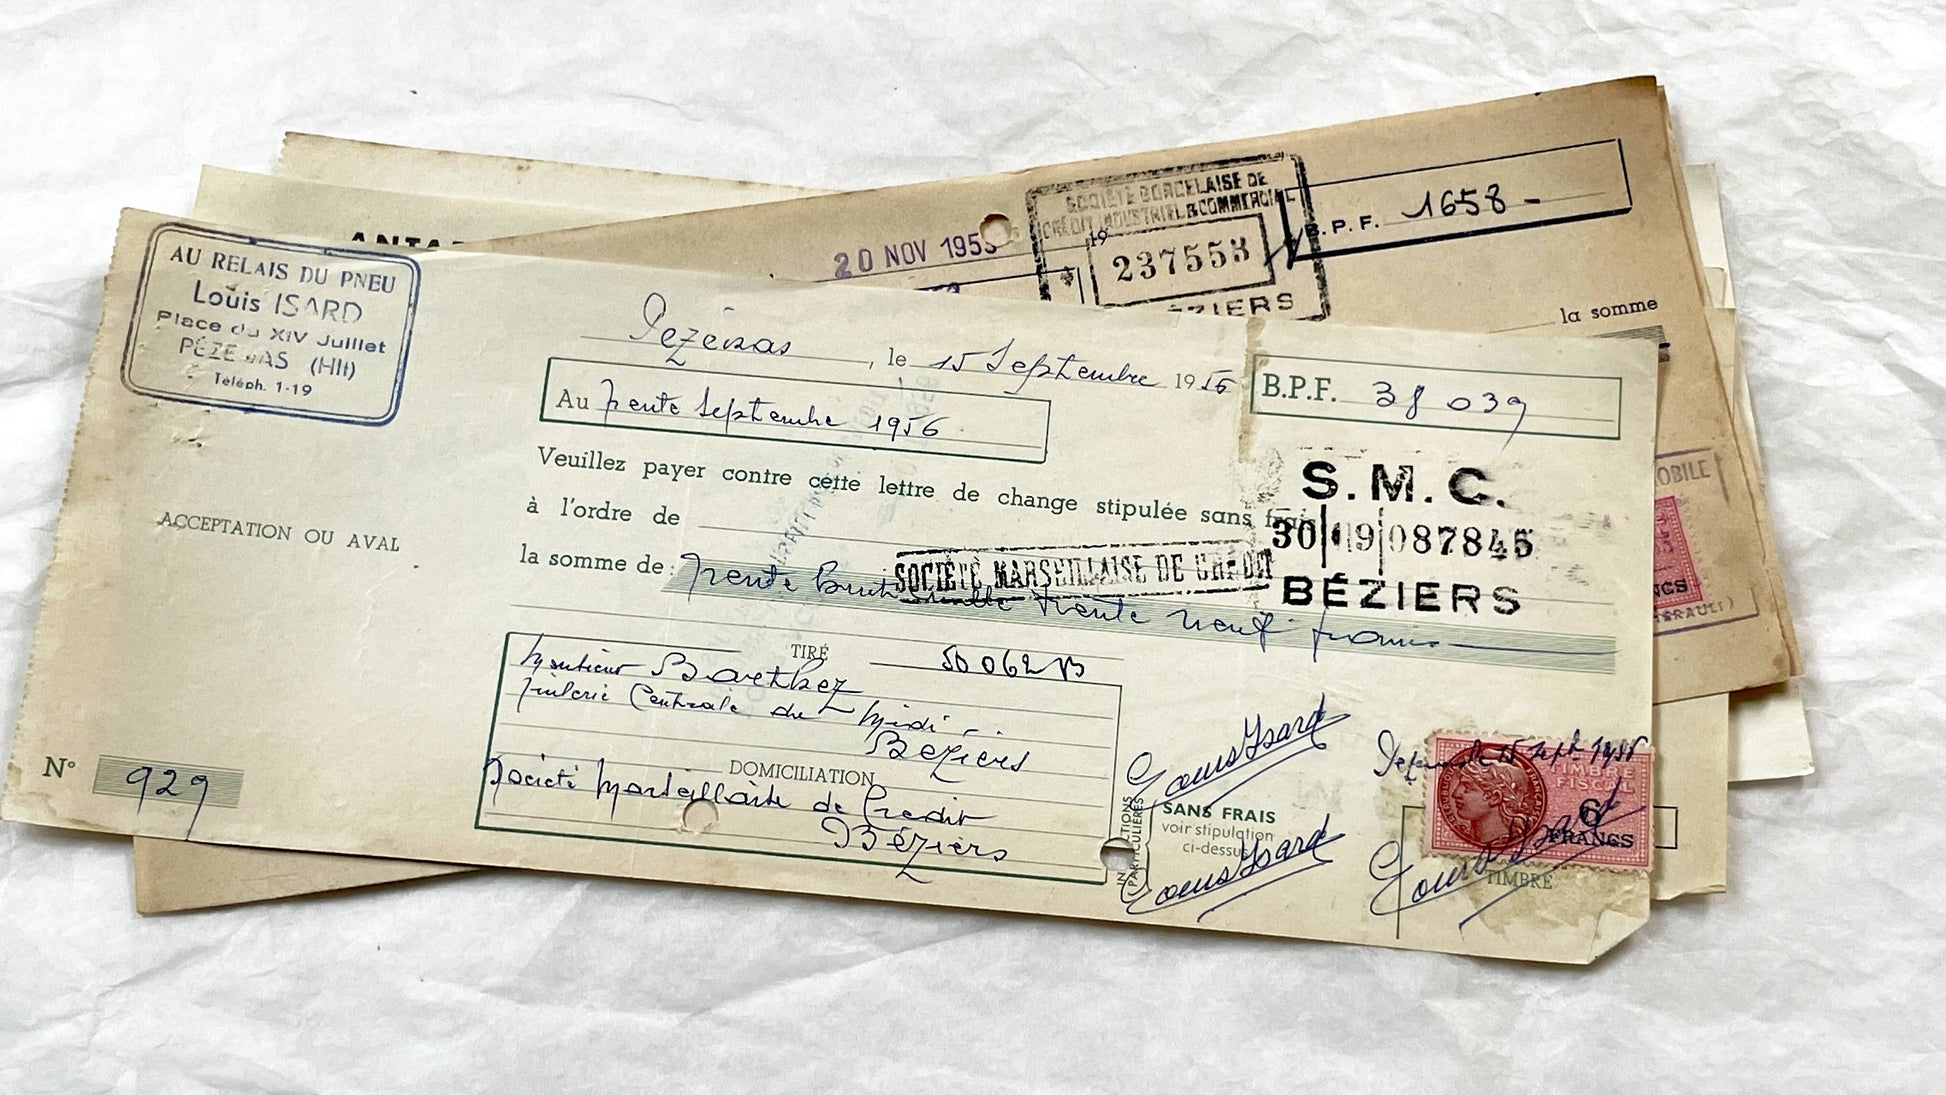 AU RELAIS DU PNEU
Louis ISARD
Place du XIV Juillet
PÉZENAS (Hlt)
Téléph. 1-19
ACCEPTATION OU AVAL
N° 929
Pezénas, le 15 Septembre 1956
B.P.F. 38 039
Au trente Septembre 1956
Veuillez payer contre cette lettre de change stipulée sans frais
à l'ordre de
la somme de: trente huit mille trente neuf francs
SOCIÉTÉ MARSEILLAISE DE CRÉDIT
S.M.C.
30 19 087846
BÉZIERS
TIRÉ
50 062 B
Monsieur Barthez
Tuilerie Centrale du Midi
Béziers
DOMICILIATION
Société Marseillaise de Crédit
Béziers
INDICATIONS PARTICULIÈRES
SANS FRAIS
voir stipulation
ci-dessus
Louis Isard
Louis Isard
Pézenas le 15 Sept. 1956
TIMBRE
FISCAL
6
FRANCS
Louis Isard
TIMBRE
20 NOV 1953
19
SOCIÉTÉ BORDELAISE DE
CRÉDIT INDUSTRIEL & COMMERCIAL
237553
BÉZIERS
B.P.F. 1658 -
la somme